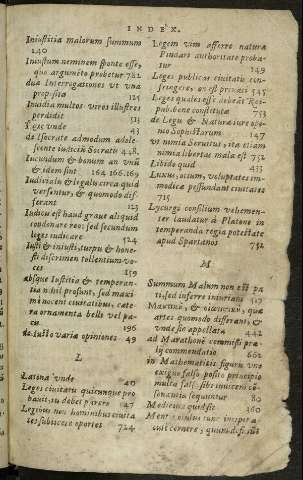 INDEX.
Iniustitia malorum summum
140
Iniustum neminem sponte esse,
quo argumēto probetur 782
dua Interrogationes vt vna
proposita 125
Inuidia multos viros illustres
perdidit 513
vnde 43
de Isocrate admodum adole-
scente iudiciū Socratis 458.
Iucundum & bonum an vnū
& idem sint 164.166.169
Iudicialu & legalu circa quid
versentur, & quomodo dif-
ferant 127
Iudicis est haud gratu aliquid
condonare reo: sed secundum
leges iudicare 124
Iusti & iniusti, turpu & hone-
sti discrimen tollentium vo-
ces 159
absque Iustitia & temperan-
tia nihil prosunt, sed maxi-
mè nocent ciuitatibus, cete-
ra ornamenta belli vel pa-
cu 196
varia opiniones 49
L
Latina vnde 40
Leges ciuitatu quicunque pro
bauit, iu debet parere 47
Leginus non hominibus ciuita
tes subijcere oportet 724
Legem vim afferre natura
Pindari authoritate proba-
tur 149
Leges publicas ciuitatu con-
545
Leges quales esse debeāt Rei-
pub. bene constituta
de Legu & Natura iure opi-
nio Sophistarum 147
vt nimia Seruitus, ita etiam
nimia libertas mala est 752
Libido quid 433
Luxus, otium, voluptates im-
modica pessundant ciuitates
715
Lycurgi consilium vehemen-
ter laudatur à Platone in
temperanda regia potestate
apud Spartanos 752
M
Summum Malum non est pa
ti, sed inferre iniuriam 117
quæ
artes quomodo differant, &
vnde sic appellata
ad Marathonē commissi præ-
lij commendatio 662
in Mathematicis figuru vna
exigua falsò posita principio
multa falsa sibi inuicem cō-
sonantia sequuntur 80
Medicus quid sit 360
Mentis oculus tunc incipit a-
cute cernere, quum